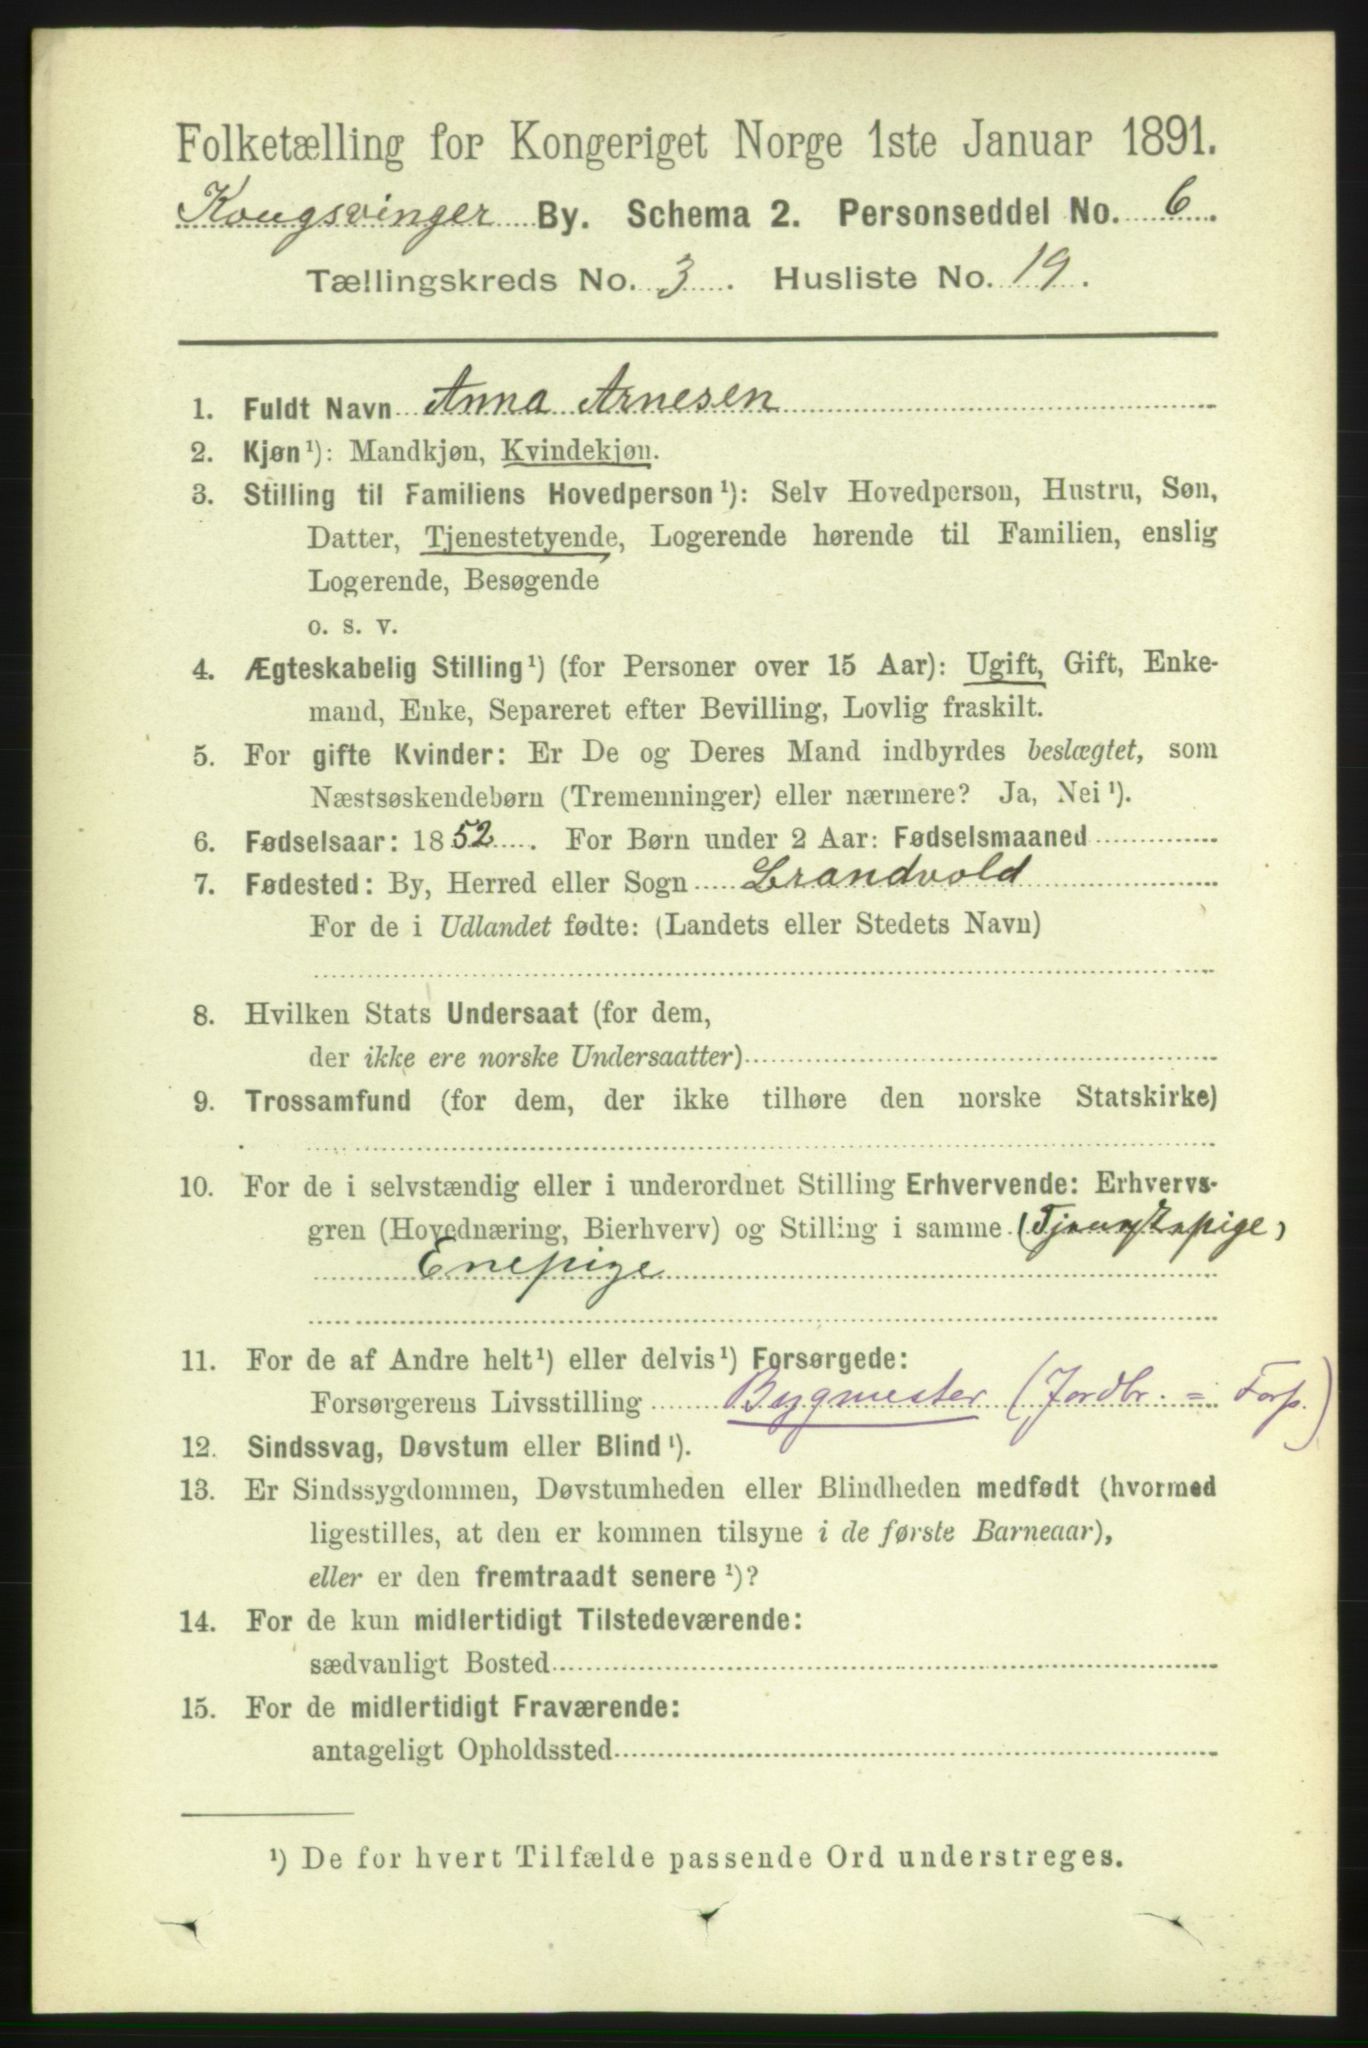 Folketælling for Kongeriget Norge 1ste Januar 1891.
Kongsvinger By. Schema 2. Personseddel No. 6.
Tællingskreds No. 3. Husliste No. 19.
1. Fuldt Navn Anna Arnesen
2. Kjøn¹): Mandkjøn, Kvindekjøn.
3. Stilling til Familiens Hovedperson¹): Selv Hovedperson, Hustru, Søn,
Datter, Tjenestetyende, Logerende hørende til Familien, enslig
Logerende, Besøgende
o. s. v.
4. Ægteskabelig Stilling¹) (for Personer over 15 Aar): Ugift, Gift, Enke-
mand, Enke, Separeret efter Bevilling, Lovlig fraskilt.
5. For gifte Kvinder: Er De og Deres Mand indbyrdes beslægtet, som
Næstsøskendebørn (Tremenninger) eller nærmere? Ja, Nei¹).
6. Fødselsaar: 1852. For Børn under 2 Aar: Fødselsmaaned
7. Fødested: By, Herred eller Sogn Brandvold
For de i Udlandet fødte: (Landets eller Stedets Navn)
8. Hvilken Stats Undersaat (for dem,
der ikke ere norske Undersaatter)
9. Trossamfund (for dem, der ikke tilhøre den norske Statskirke)
10. For de i selvstændig eller i underordnet Stilling Erhvervende: Erhvervs-
gren (Hovednæring, Bierhverv) og Stilling i samme (Tjenestepige)
Enepige
11. For de af Andre helt¹) eller delvis¹) Forsørgede:
Forsørgerens Livsstilling Bygmester (Jordbr. = Forp.)
12. Sindssvag, Døvstum eller Blind¹).
13. Er Sindssygdommen, Døvstumheden eller Blindheden medfødt (hvormed
ligestilles, at den er kommen tilsyne i de første Barneaar),
eller er den fremtraadt senere¹)?
14. For de kun midlertidigt Tilstedeværende:
sædvanligt Bosted
15. For de midlertidigt Fraværende:
antageligt Opholdssted
¹) De for hvert Tilfælde passende Ord understreges.